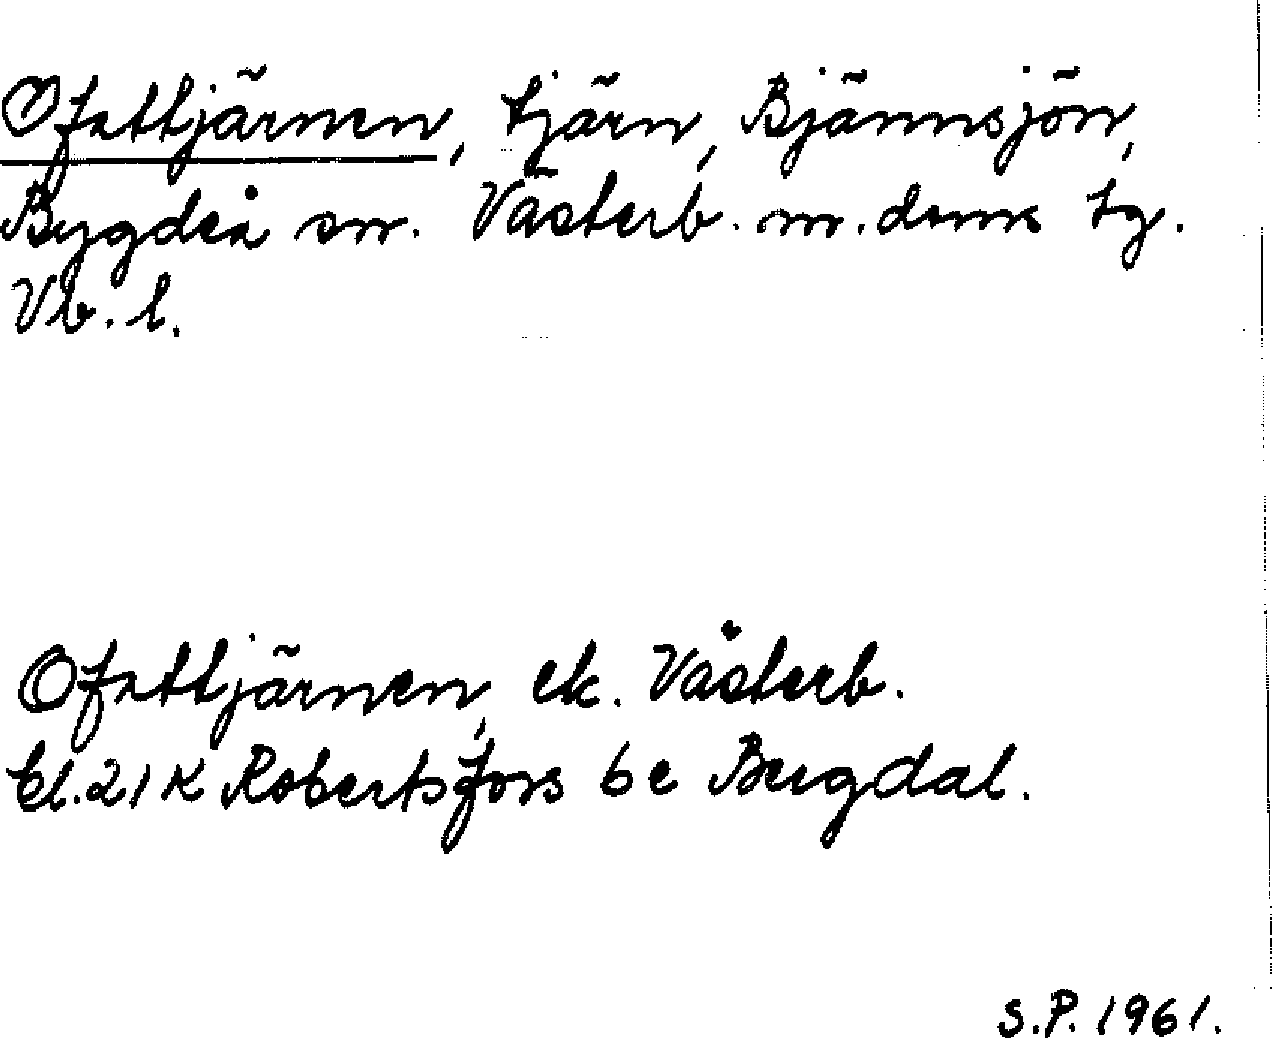 Ofettjärnen, tjärn, Bjännsjön,
Bygdeå sn. Västerb. m. doms tg.
Vb. l.
Ofettjärnen, ek. Västerb.
bl. 21 K Robertsfors 6 e Bergdal.
S.P. 1961.